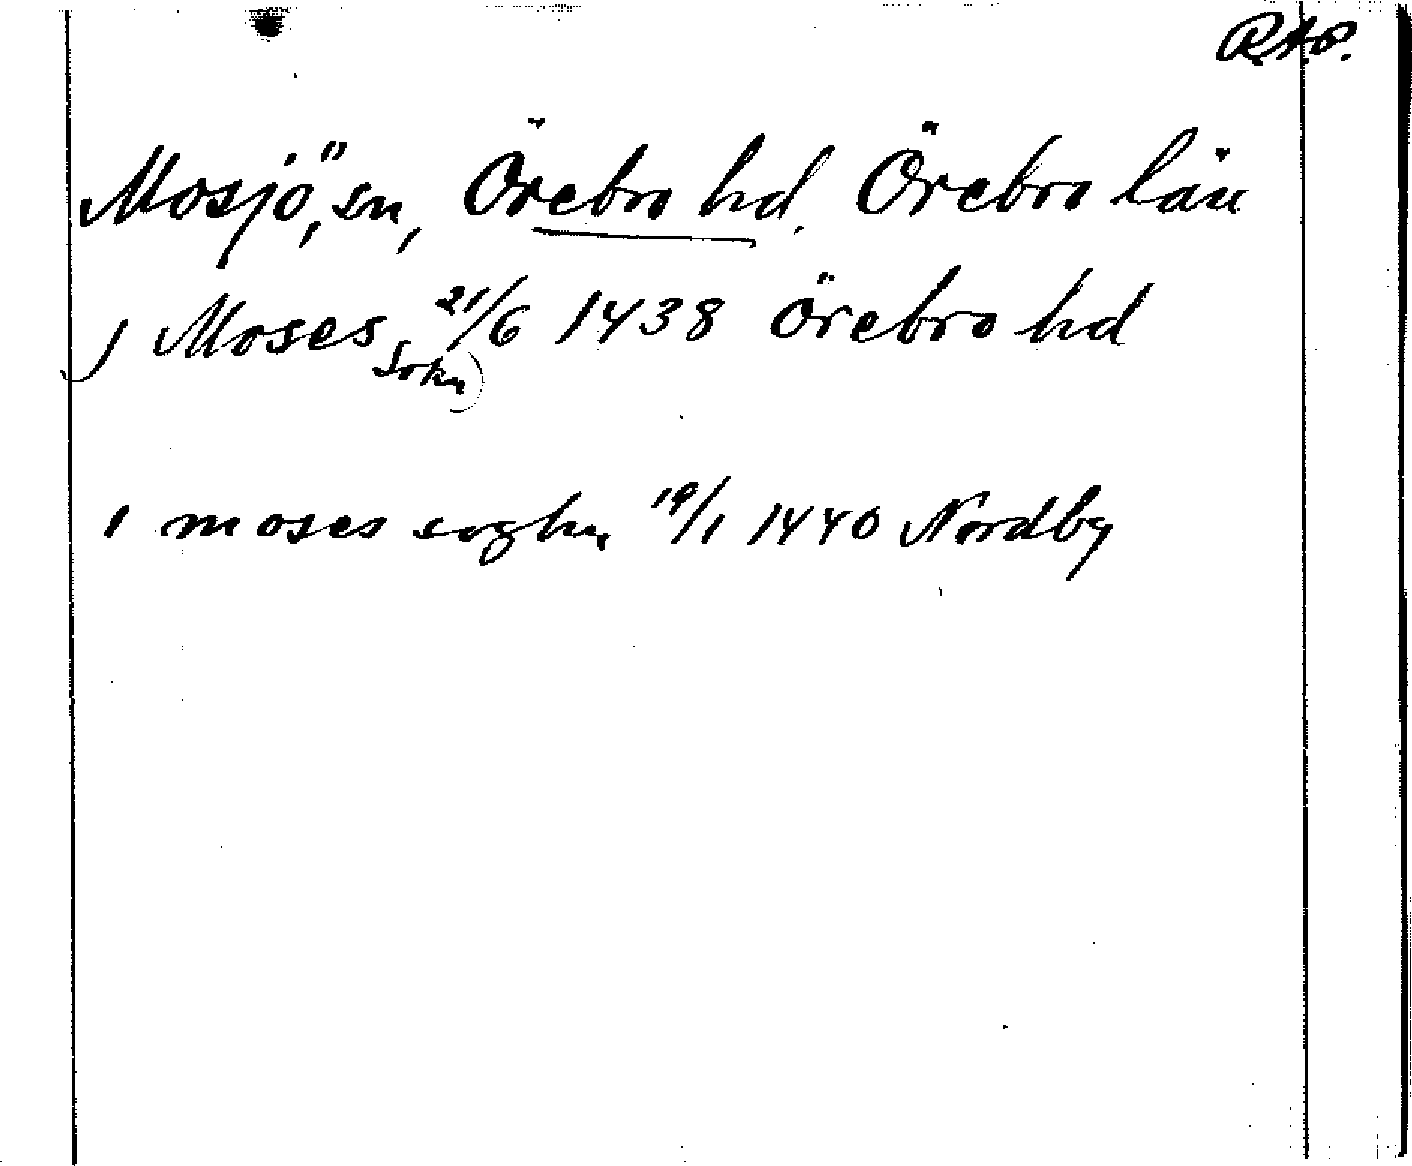 RAP.
Mosjö, sn, Örebro hd. Örebro län
J Moses 21/6 1438 Örebro hd
Sokn)
i moses soghn 19/1 1440 Nordby